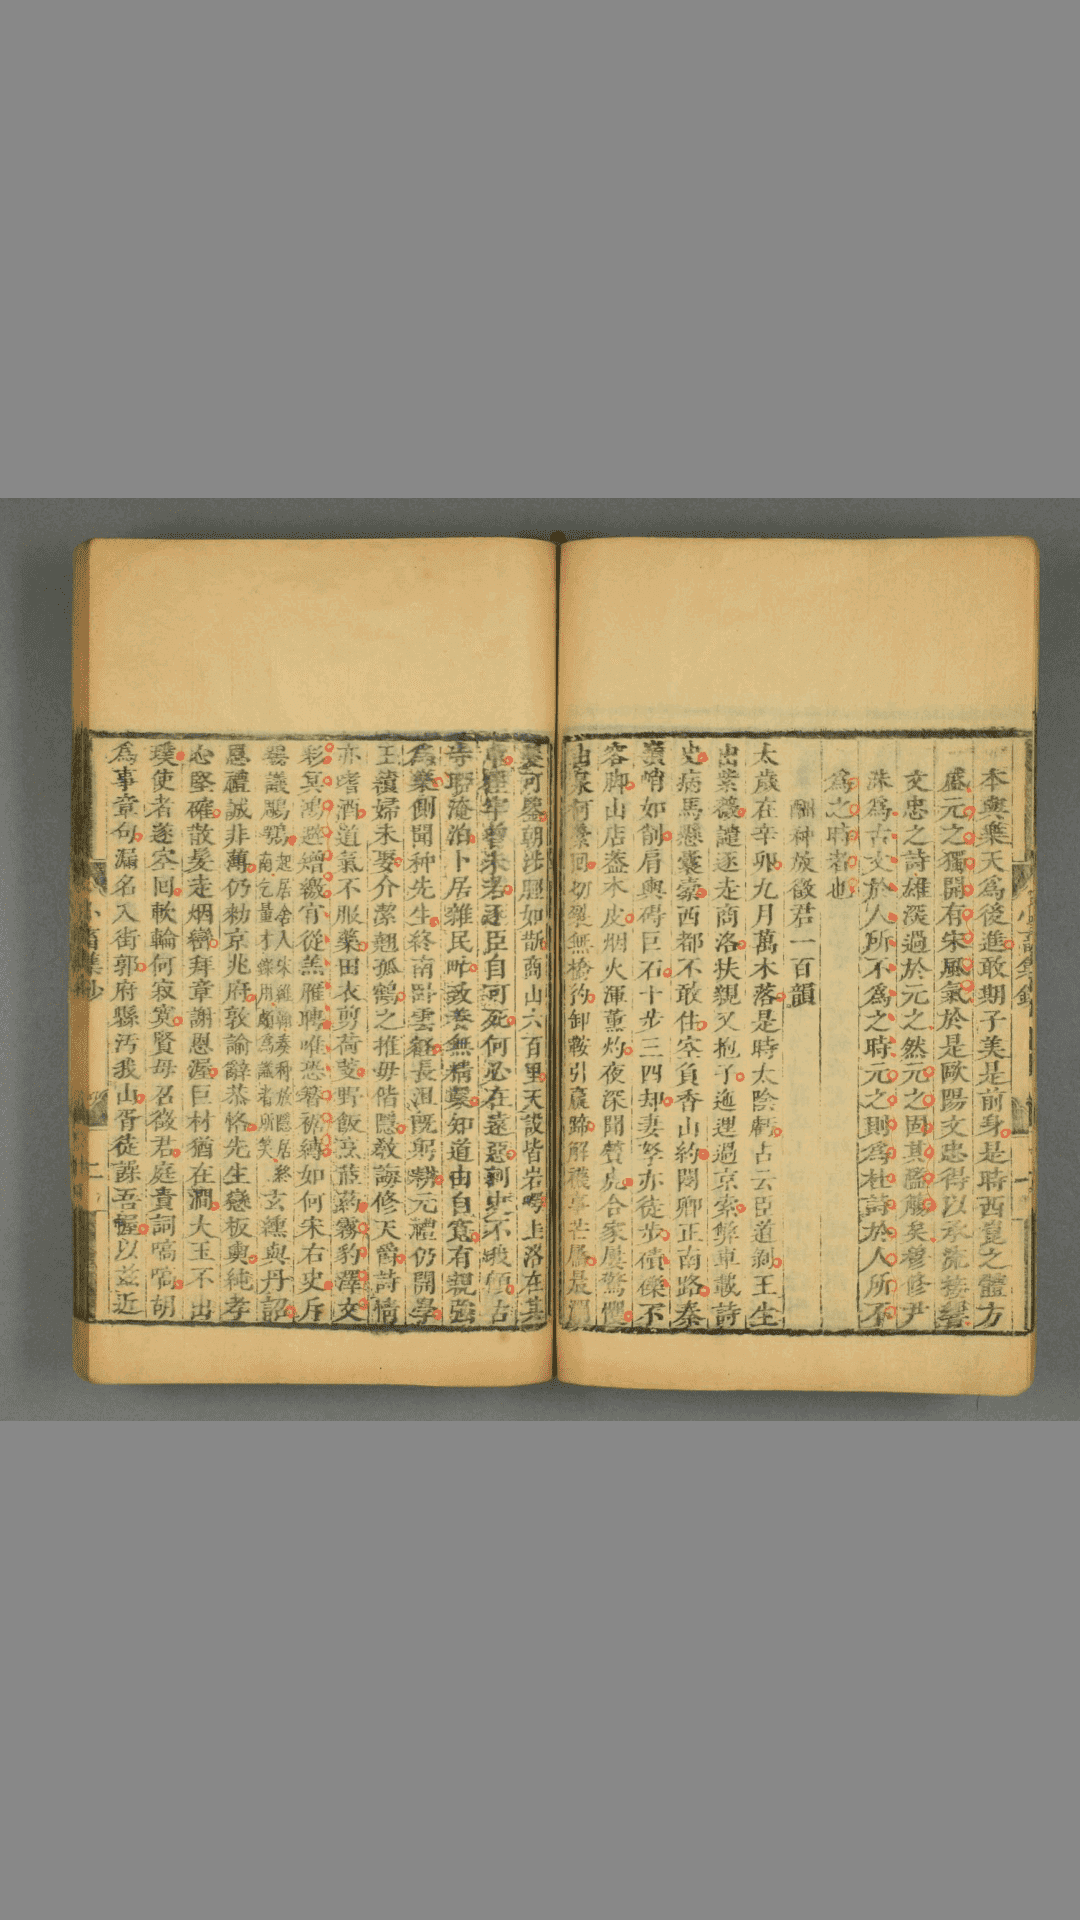 本與樂天爲後進敢期子美是前身是時西崑之體方
盛元之獨開有宋風氣於是歐陽文忠得以承流接響
文忠之詩雄深過於元之然元之固其濫觴矣穆修尹
洙爲古文於人所不爲之時元之則爲杜詩於人所不
爲之時者也
酬种放徵君一百韻
太歲在辛卯九月萬木落是時太陰虧占云臣道剝王生
出紫薇譴逐走商洛扶親又抱子迤邐過京索弊車載詩
史病馬懸囊橐西都不敢住空負香山約閿鄉正南路秦
嶺峭如削肩輿碍巨石十步三四却妻孥亦徒步磧礫不
容脚山店蓋木皮烟火渾薰灼夜深聞贊虎合家屢驚愕
切裂無橋彴卸鞍引羸蹄解襪事芒屩晨澗
可鑒朝涉脛如斮商山六百里天設皆岩崿上洛在其
逐臣自可死何必在遠惡刺史不我顧古
寺聊淹泊卜居雜民町致養無精鑿知道由自寬有親強
爲樂側聞种先生終南臥雲壑長沮旣躬耕元禮仍開學
王績婦未娶介潔翹孤鶴之推毋偕隱敎誨修天爵詩情
亦嗜酒道氣不服藥田衣剪荷芰野飯烹葅葯霧豹澤文
彩冥鴻避繒繳宵從羔雁聘唯恐簪裾縛如何宋右史斥
鶚議鵰鶚起居舍人宋維翰奏种放隱居終南乞量才錄用頗爲識者所笑玄纁與丹詔
恩禮誠非薄仍勅京兆府敦諭辭恭恪先生戀板輿純孝
心堅確散髮走烟巒拜章謝恩渥巨材猶在澗大玉不出
璞使者遂空回軟輪何寂寞賢毋召徵君庭責詞嗃嗃胡
爲事章句漏名入街郭府縣汚我山胥徒譟吾幄以茲近
小畜集鈔
二